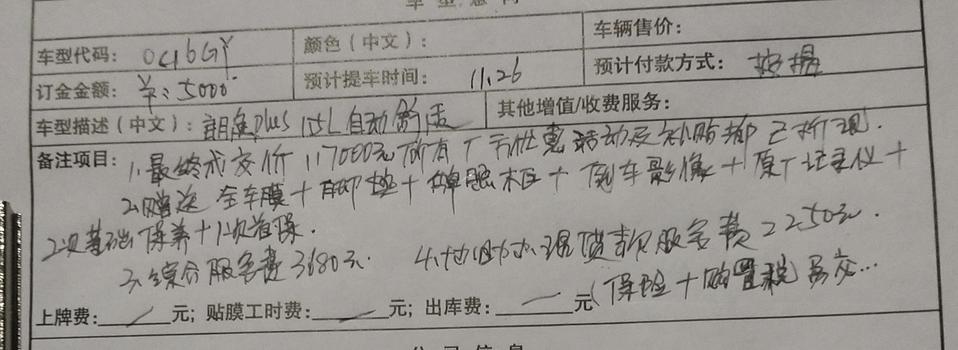 车型代码：OC16GY 颜色（中文）： 车辆售价：
订金金额：¥：5000 预计提车时间：11.26 预计付款方式：按揭
车型描述（中文）：朗逸plus 1.5L自动舒适 其他增值/收费服务：
备注项目：1.最终成交价117000元 所有厂方优惠活动及补贴都已折现.
2.赠送 全车膜+脚垫+牌照框+倒车影像+原厂记录仪+
2次基础保养+1次首保.
3.综合服务费3680元. 4. 办理贷款服务费2250元.
(保险+购置税另交...
上牌费： 元；贴膜工时费： 元；出库费： 元
公司信息